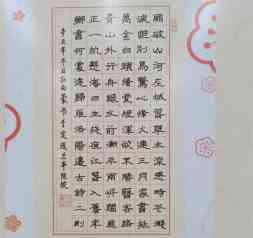 國破山河在城春草木深感時花濺
淚恨別鳥驚心烽火連三月家書抵
萬金白頭搔更短渾欲不勝簪客路
青山外行舟綠水前潮平兩岸闊風
正一帆懸海日生殘夜江春入舊年
鄉書何處達歸雁洛陽邊古詩二則
辛丑年冬日